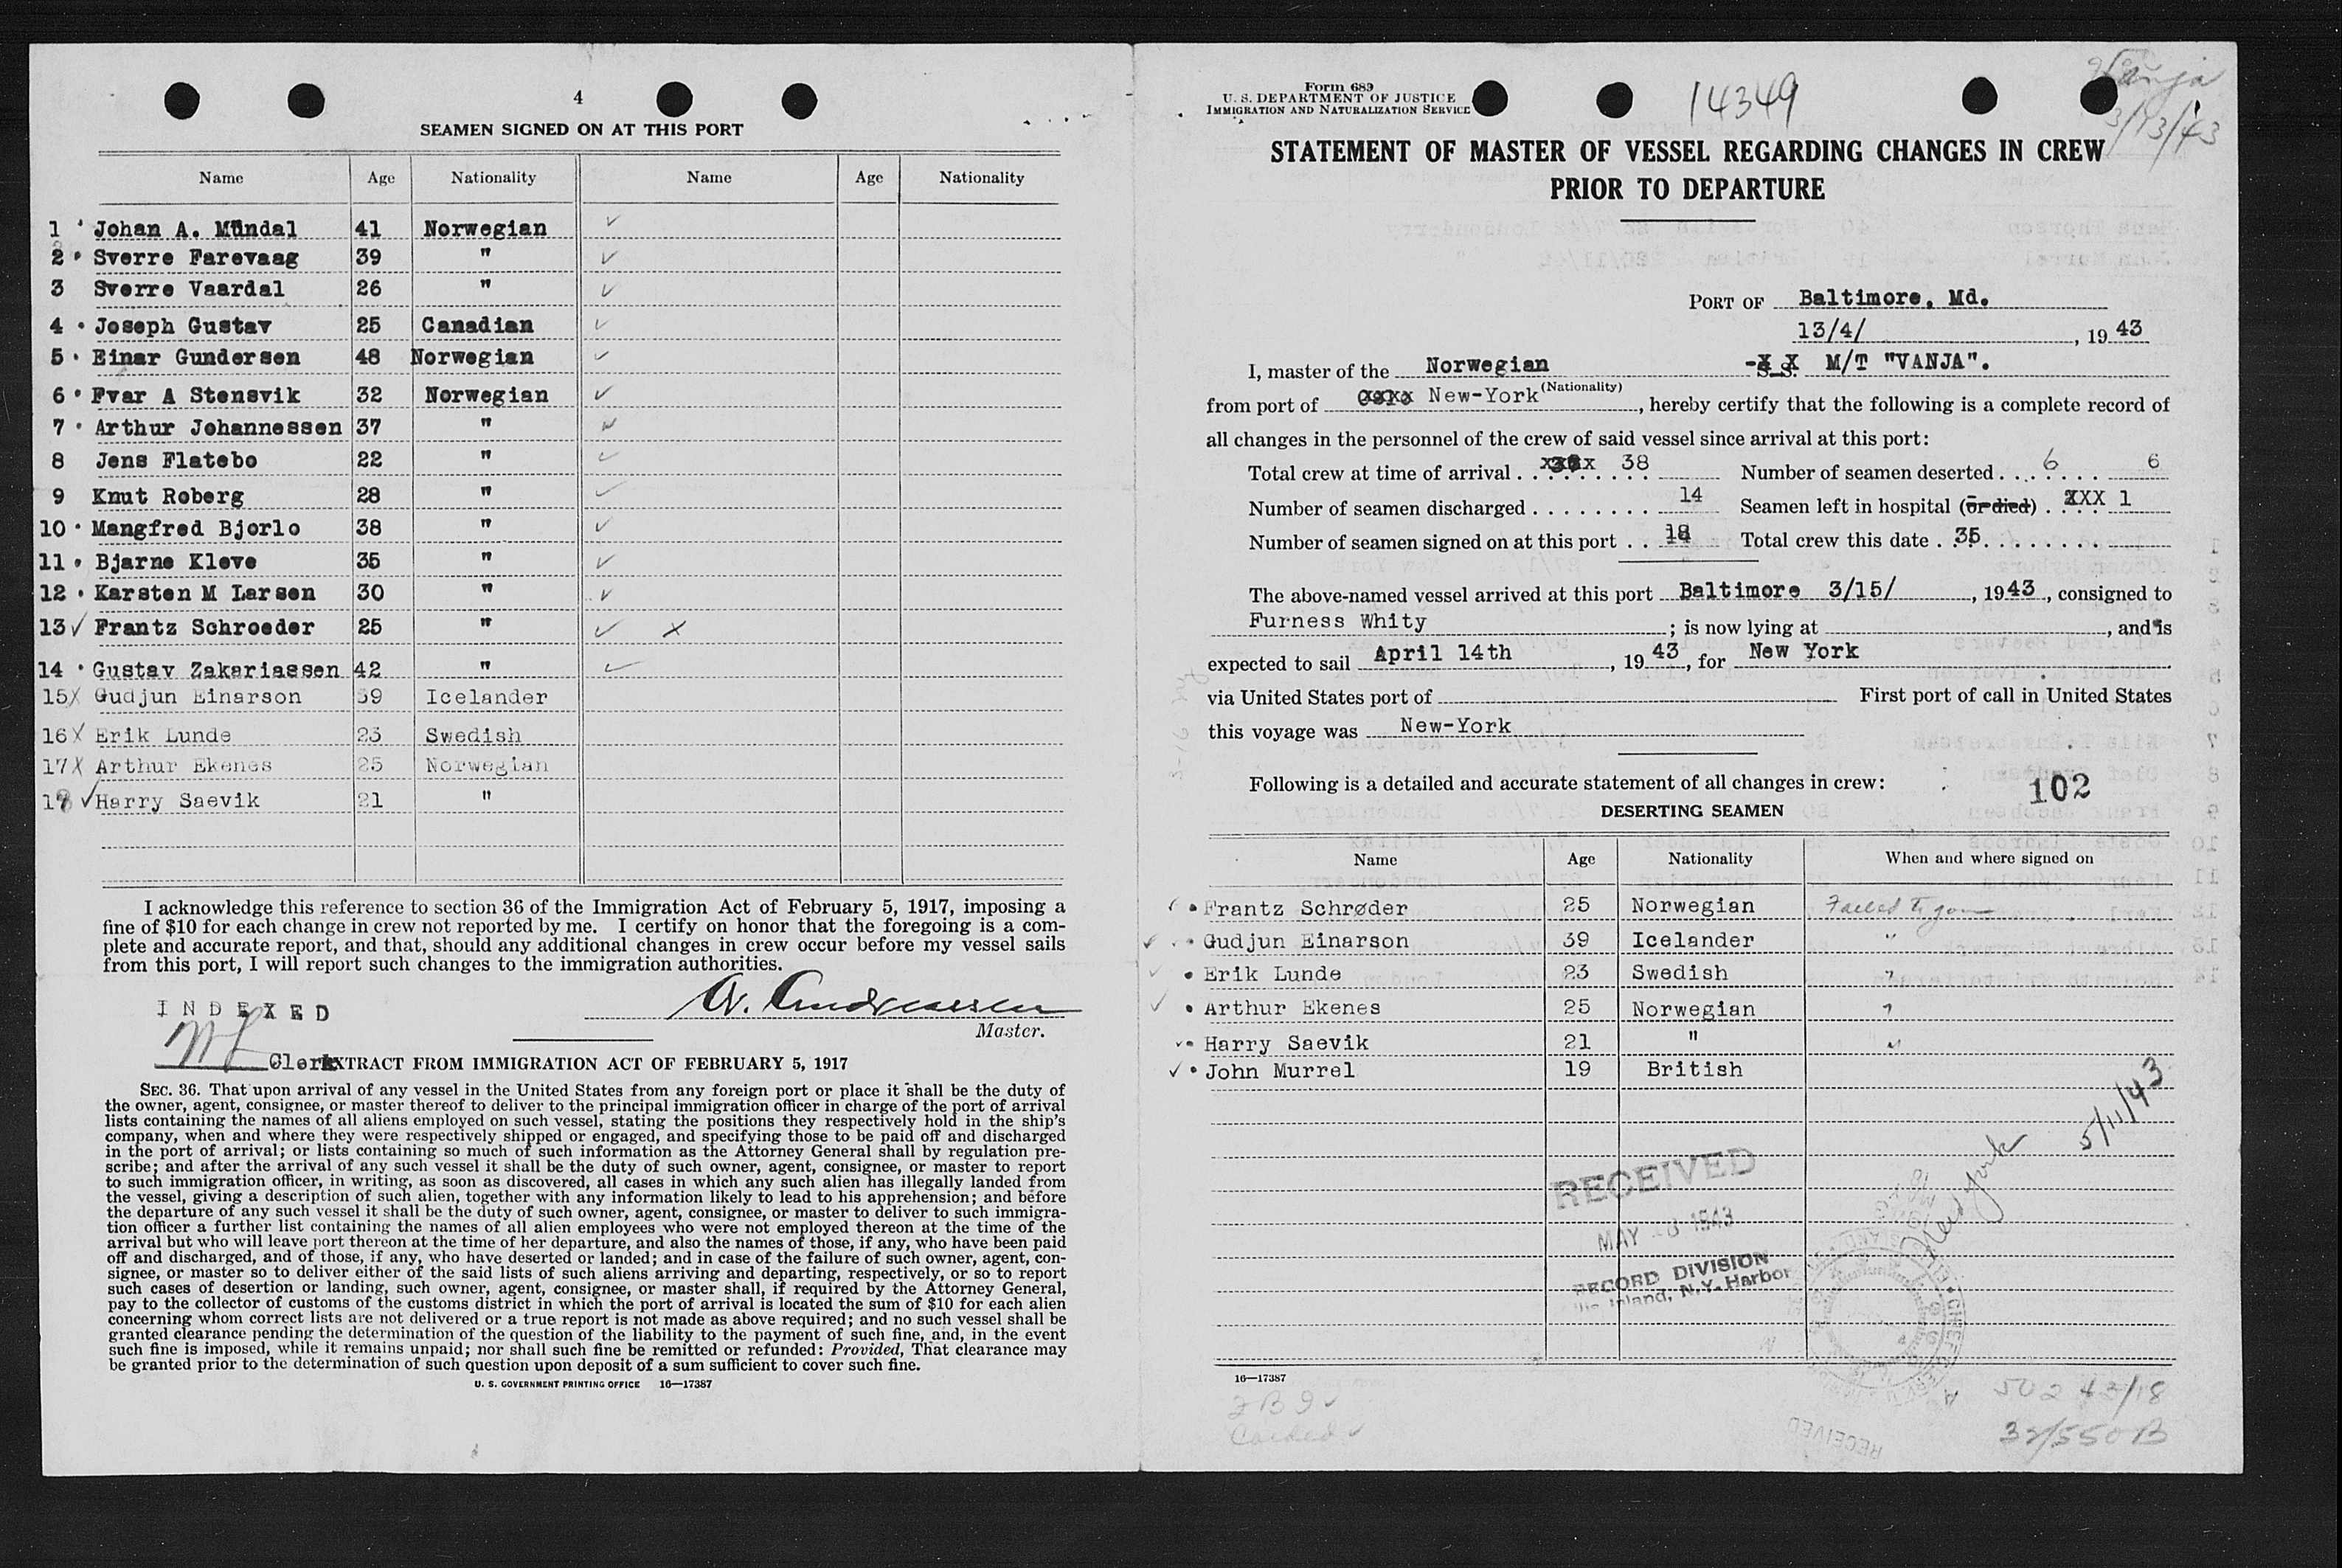 4
SEAMEN SIGNED ON AT THIS PORT
Name Age Nationality Name Age Nationality
1 Johan A. Mundal 41 Norwegian ✓
2 Sverre Farevaag 39 " ✓
3 Sverre Vaardal 26 " ✓
4 Joseph Gustav 25 Canadian ✓
5 Einar Gundersen 48 Norwegian ✓
6 Fvar A Stensvik 32 Norwegian ✓
7 Arthur Johannessen 37 " ✓
8 Jens Flatebo 22 " ✓
9 Knut Roberg 28 " ✓
10 Mangfred Bjorlo 38 " ✓
11 Bjarne Kleve 35 " ✓
12 Karsten M Larsen 30 " ✓
13 ✓ Frantz Schroeder 25 " ✓ X
14 Gustav Zakariassen 42 " ✓
15 X Gudjun Einarson 39 Icelander
16 X Erik Lunde 23 Swedish
17 X Arthur Ekenes 25 Norwegian
18 ✓ Harry Saevik 21 "
I acknowledge this reference to section 36 of the Immigration Act of February 5, 1917, imposing a
fine of $10 for each change in crew not reported by me. I certify on honor that the foregoing is a com-
plete and accurate report, and that, should any additional changes in crew occur before my vessel sails
from this port, I will report such changes to the immigration authorities.
INDEXED
A. Andreassen
Master.
Clerk
EXTRACT FROM IMMIGRATION ACT OF FEBRUARY 5, 1917
SEC. 36. That upon arrival of any vessel in the United States from any foreign port or place it shall be the duty of
the owner, agent, consignee, or master thereof to deliver to the principal immigration officer in charge of the port of arrival
lists containing the names of all aliens employed on such vessel, stating the positions they respectively hold in the ship's
company, when and where they were respectively shipped or engaged, and specifying those to be paid off and discharged
in the port of arrival; or lists containing so much of such information as the Attorney General shall by regulation pre-
scribe; and after the arrival of any such vessel it shall be the duty of such owner, agent, consignee, or master to report
to such immigration officer, in writing, as soon as discovered, all cases in which any such alien has illegally landed from
the vessel, giving a description of such alien, together with any information likely to lead to his apprehension; and before
the departure of any such vessel it shall be the duty of such owner, agent, consignee, or master to deliver to such immigra-
tion officer a further list containing the names of all alien employees who were not employed thereon at the time of the
arrival but who will leave port thereon at the time of her departure, and also the names of those, if any, who have been paid
off and discharged, and of those, if any, who have deserted or landed; and in case of the failure of such owner, agent, con-
signee, or master so to deliver either of the said lists of such aliens arriving and departing, respectively, or so to report
such cases of desertion or landing, such owner, agent, consignee, or master shall, if required by the Attorney General,
pay to the collector of customs of the customs district in which the port of arrival is located the sum of $10 for each alien
concerning whom correct lists are not delivered or a true report is not made as above required; and no such vessel shall be
granted clearance pending the determination of the question of the liability to the payment of such fine, and, in the event
such fine is imposed, while it remains unpaid; nor shall such fine be remitted or refunded: Provided, That clearance may
be granted prior to the determination of such question upon deposit of a sum sufficient to cover such fine.
U. S. GOVERNMENT PRINTING OFFICE 16—17387
Form 689
U. S. DEPARTMENT OF JUSTICE
IMMIGRATION AND NATURALIZATION SERVICE
14349
Vanja
3/13/43
STATEMENT OF MASTER OF VESSEL REGARDING CHANGES IN CREW
PRIOR TO DEPARTURE
PORT OF Baltimore, Md.
13/4/ , 19 43
I, master of the Norwegian M/T "VANJA".
(Nationality)
from port of New-York, hereby certify that the following is a complete record of
all changes in the personnel of the crew of said vessel since arrival at this port:
Total crew at time of arrival 38 Number of seamen deserted 6 6
Number of seamen discharged 14 Seamen left in hospital (or died) XXX 1
Number of seamen signed on at this port 18 Total crew this date 35
The above-named vessel arrived at this port Baltimore 3/15/ , 19 43, consigned to
Furness Whity ; is now lying at , and is
expected to sail April 14th , 19 43, for New York
via United States port of First port of call in United States
this voyage was New-York
Following is a detailed and accurate statement of all changes in crew:
102
DESERTING SEAMEN
Name Age Nationality When and where signed on
Frantz Schrøder 25 Norwegian Failed to join
Gudjun Einarson 39 Icelander "
Erik Lunde 23 Swedish "
Arthur Ekenes 25 Norwegian "
Harry Saevik 21 " "
John Murrel 19 British
5/11/43
New York
RECEIVED
MAY -8 1943
RECORD DIVISION
Island, N.Y. Harbor
16—17387
RECEIVED
502 42/18